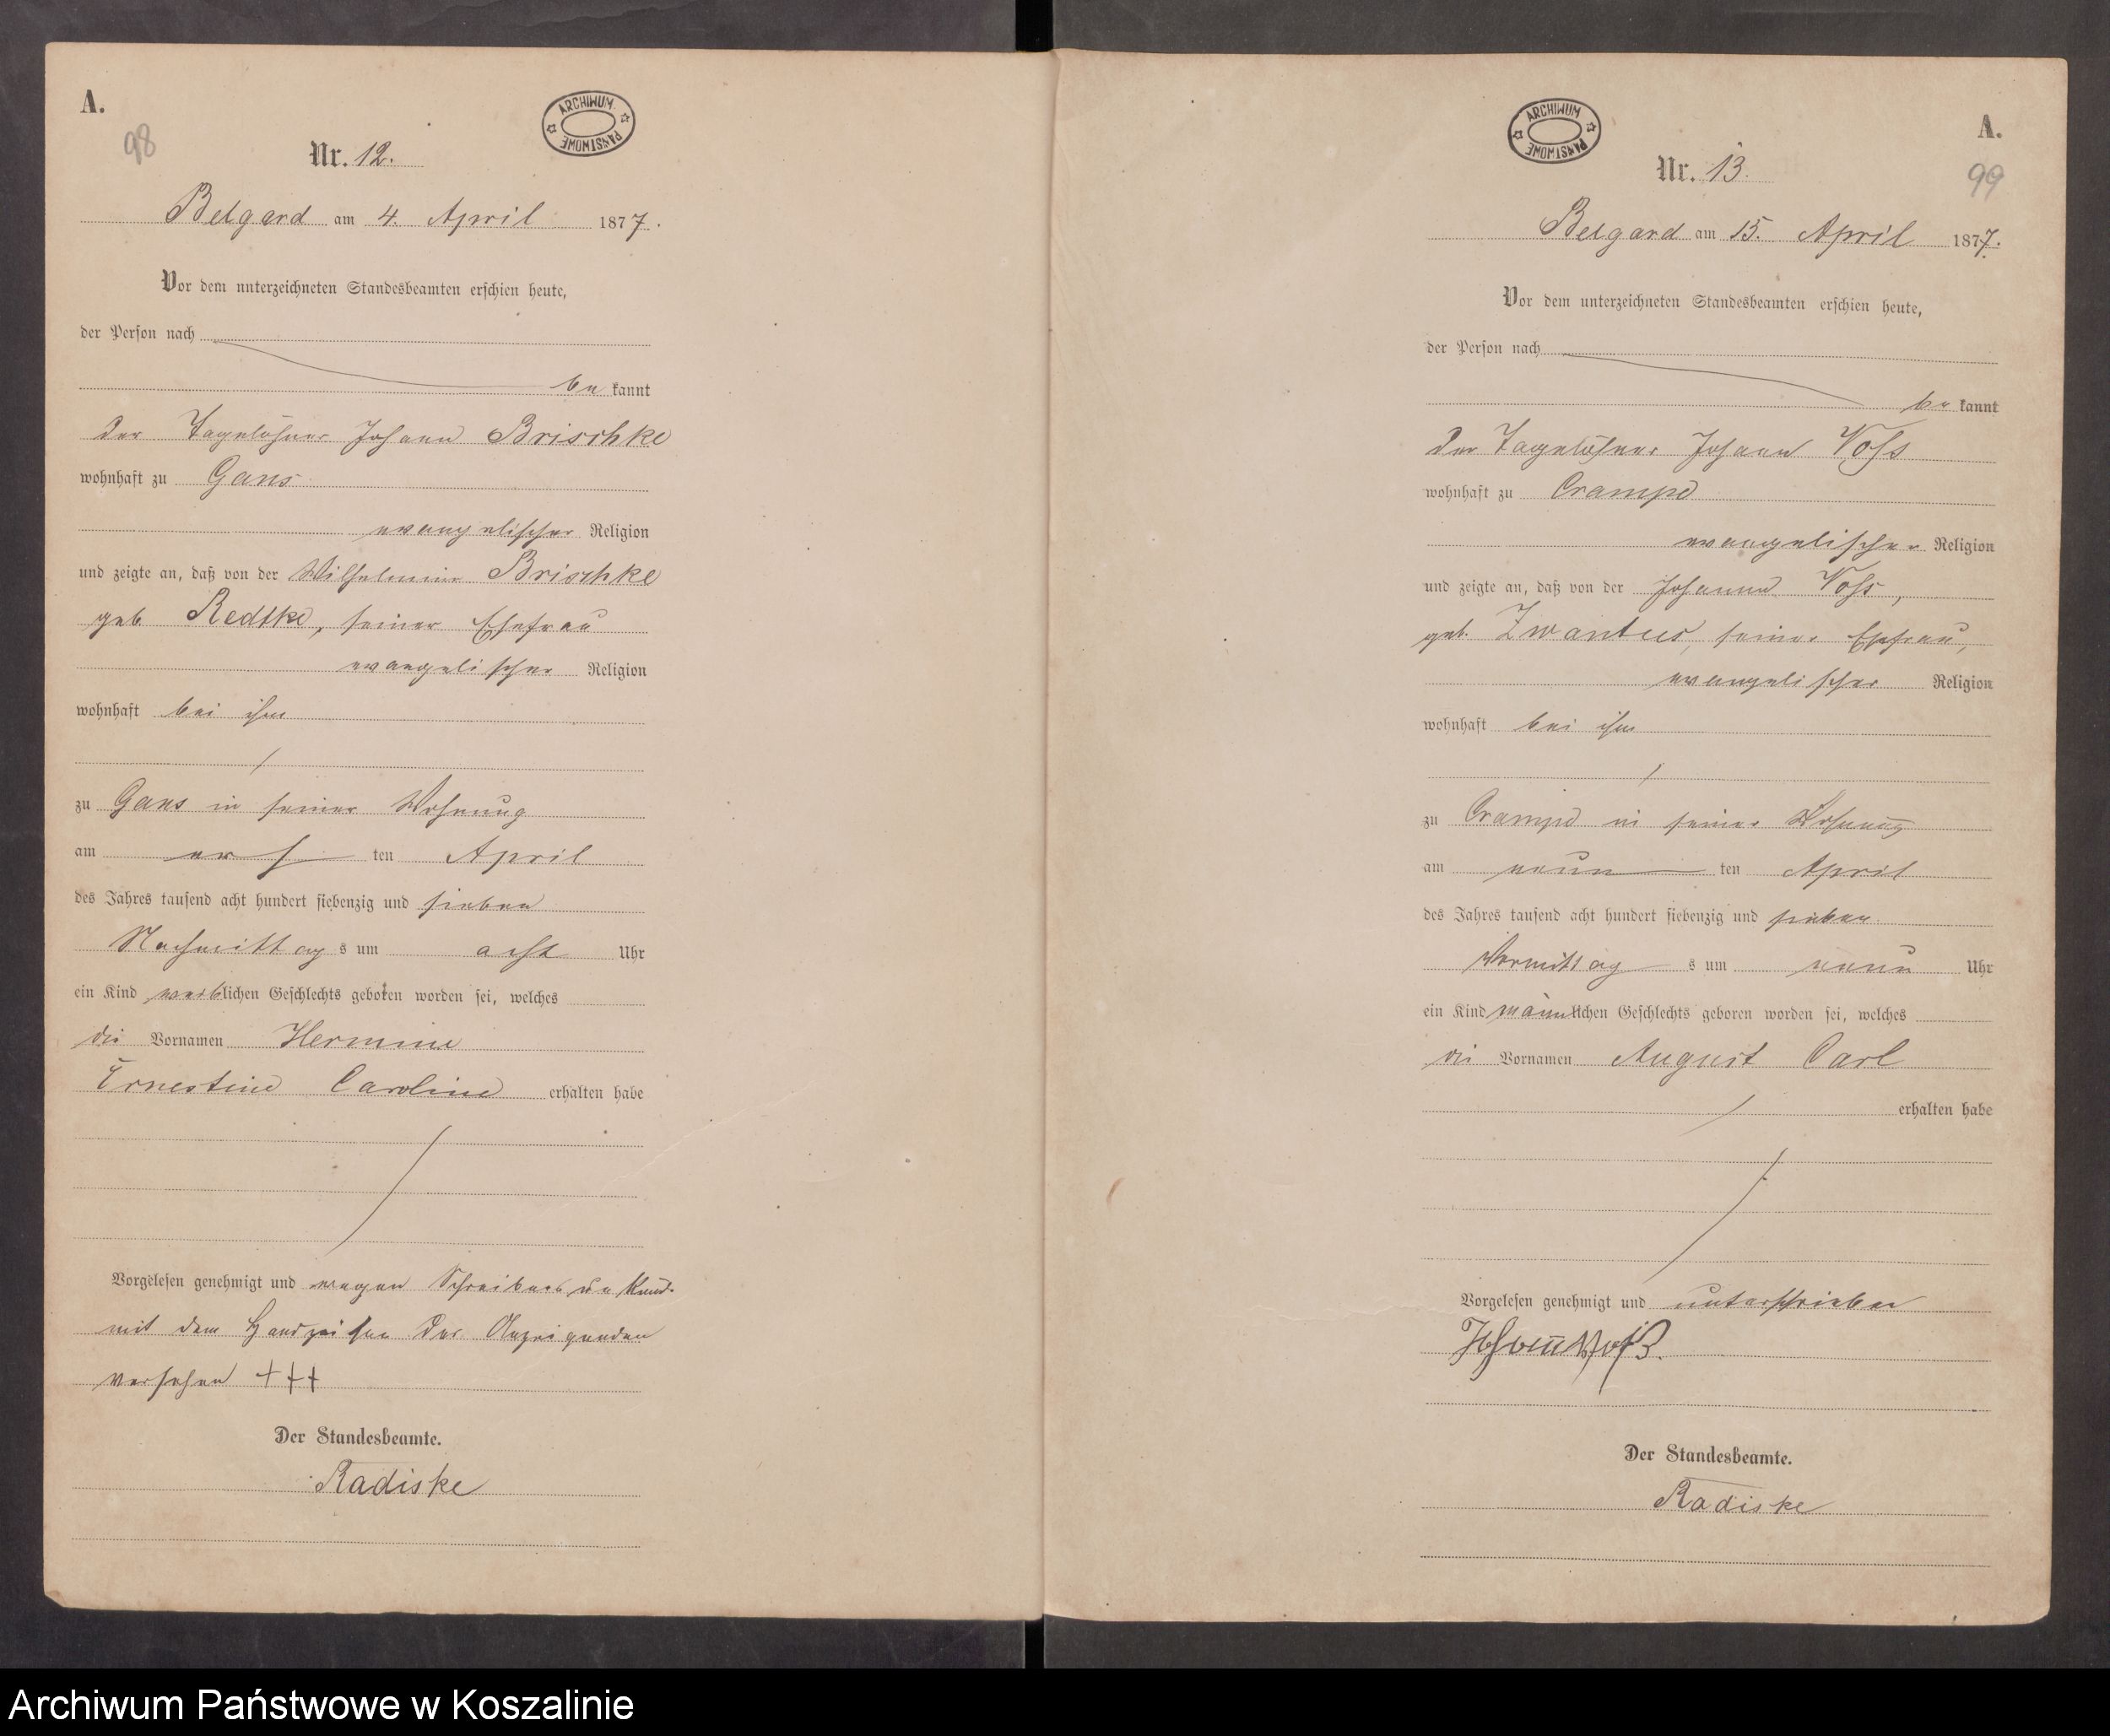 A.
98
Nr. 12.
ARCHIWUM PAŃSTWOWE
Belgard am 4. April 1877.
Vor dem unterzeichneten Standesbeamten erschien heute,
der Person nach
be kannt
der Tagelöhner Johann Brischke
wohnhaft zu Gans
evangelischer Religion
und zeigte an, daß von der Wilhelmine Brischke
geb Redtke, seiner Ehefrau
evangelischer Religion
wohnhaft bei ihm
zu Gans in seiner Wohnung
am ers ten April
des Jahres tausend acht hundert siebenzig und sieben
Nachmittag s um acht Uhr
ein Kind weiblichen Geschlechts geboren worden sei, welches
die Vornamen Hermine
Ernestine Caroline erhalten habe
Vorgelesen genehmigt und wegen Schreibens
mit dem Handzeichen des Anzeigenden
versehen +++
Der Standesbeamte.
Radiske
A.
99
Nr. 13.
ARCHIWUM PAŃSTWOWE
Belgard am 15. April 1877.
Vor dem unterzeichneten Standesbeamten erschien heute,
der Person nach
be kannt
der Tagelöhner Johann Voss
wohnhaft zu Crampe
evangelischer Religion
und zeigte an, daß von der Johanne Voss,
geb. seiner Ehefrau,
evangelischer Religion
wohnhaft bei ihm
zu Crampe in seiner Wohnung
am neun ten April
des Jahres tausend acht hundert siebenzig und sieben
Vormittag s um neun Uhr
ein Kind männlichen Geschlechts geboren worden sei, welches
die Vornamen August Carl
erhalten habe
Vorgelesen genehmigt und unterschrieben
Johann Voß.
Der Standesbeamte.
Radiske
Archiwum Państwowe w Koszalinie